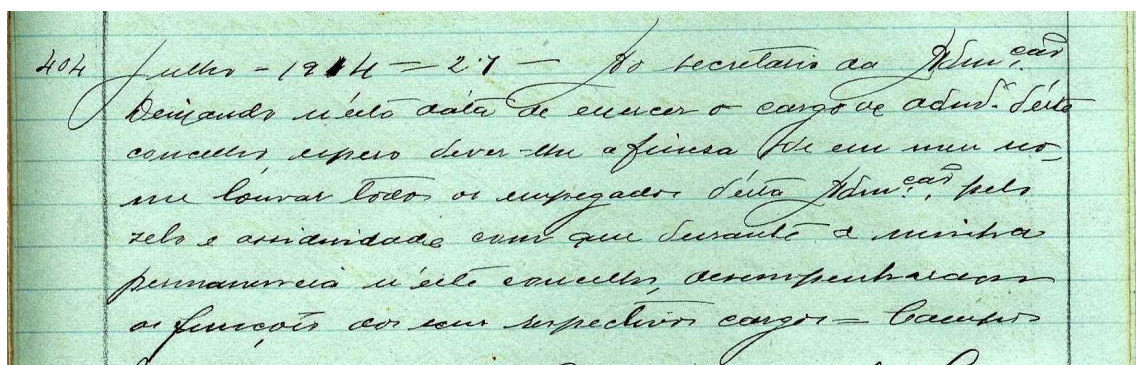 404 Julho - 1914 - 27 - Ao secretario da Adm.ção
Deixando n'esta data de exercer o cargo de adm.or d'este
concelho, espero dever-lhe a fineza de em meu no-
me louvar todos os empregados d'esta Adm.ção, pelo
zelo e assiduidade com que durante a minha
permanencia n'este concelho, desempenharam
as funcções dos seus respectivos cargos = Campos